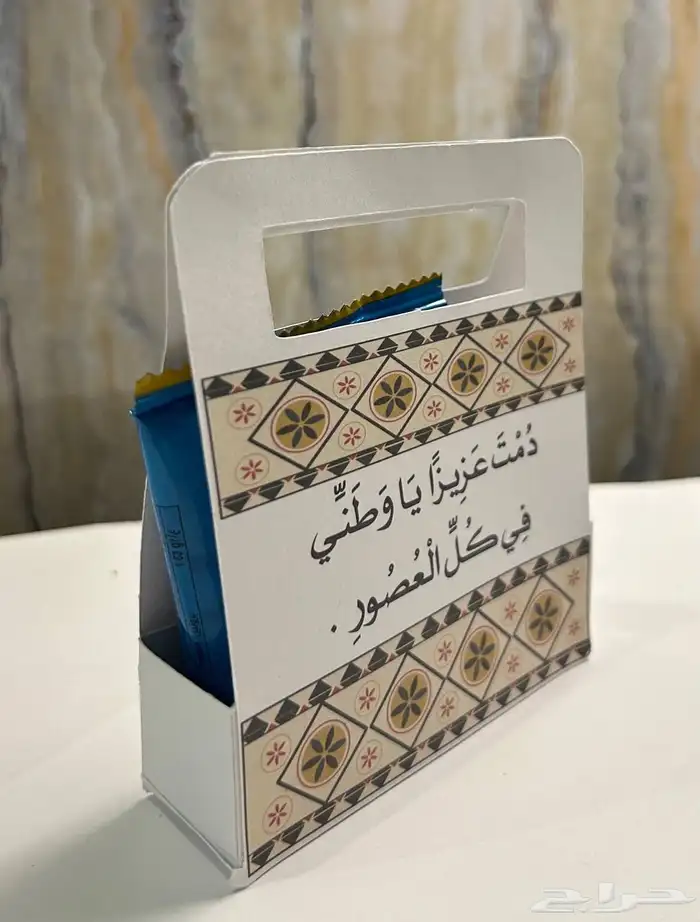 دُمْتَ عَزِيزًا يَا وَطَنِّي
فِي كُلِّ الْعُصُورِ .
حراج